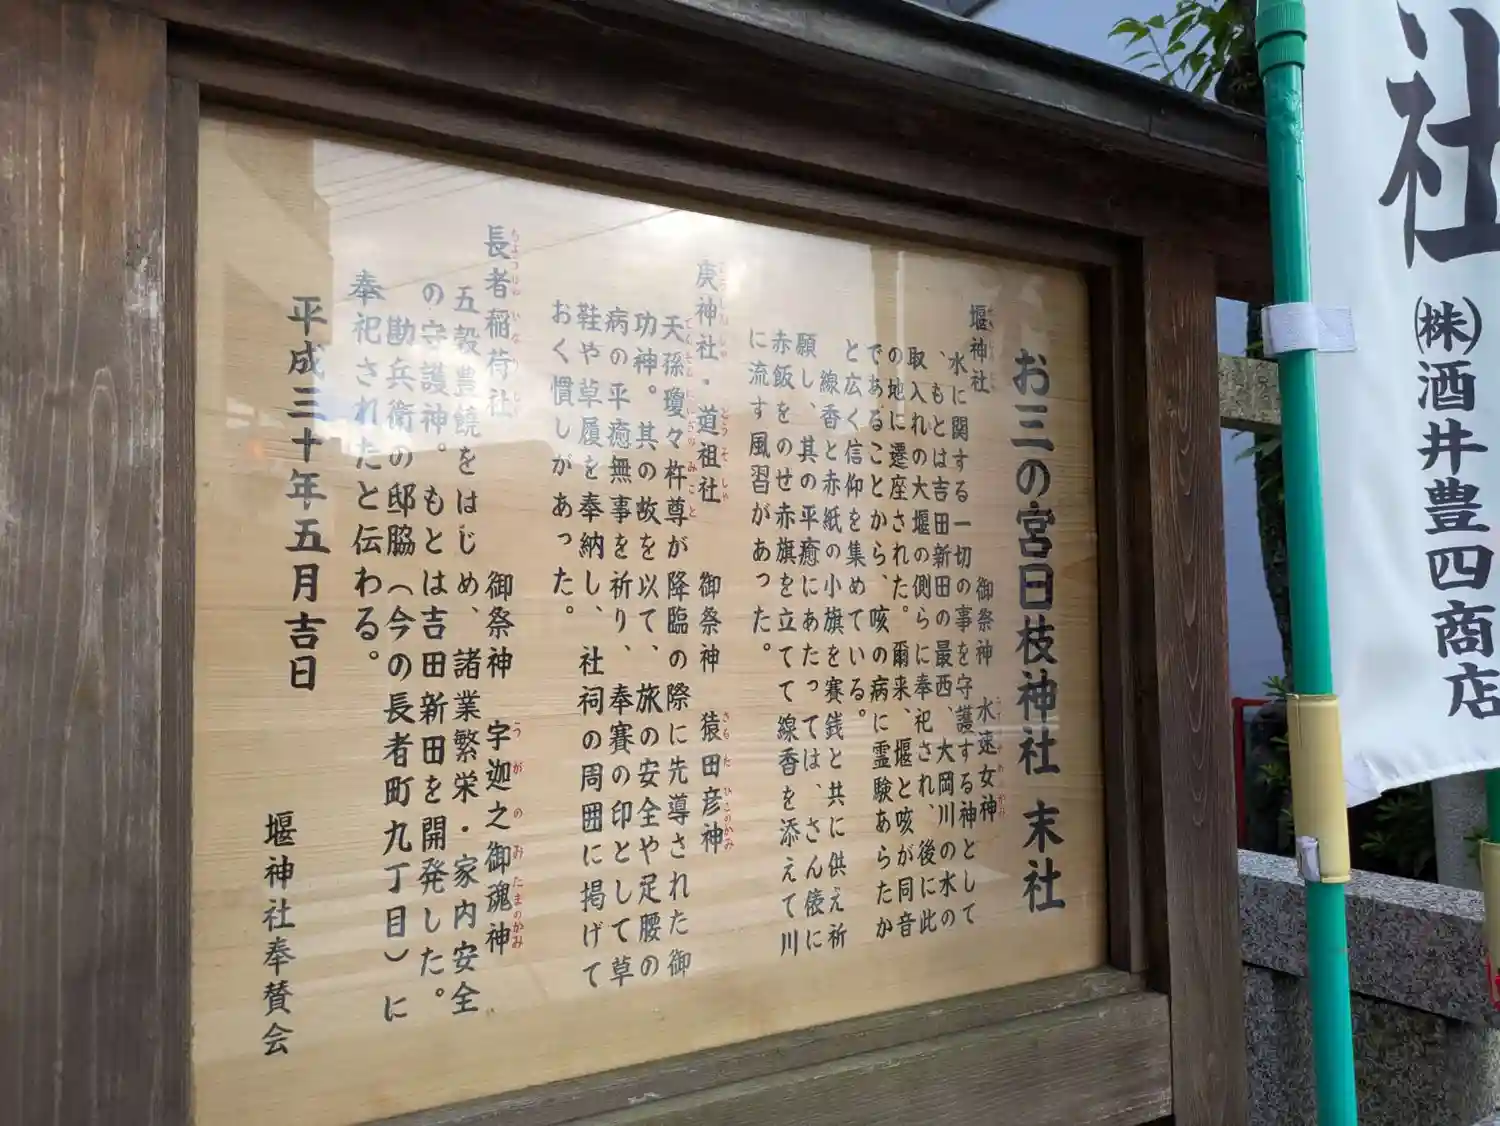 お三の宮日枝神社 末社
堰神社 御祭神 水速女神
水に関する一切の事を守護する神として
、もとは吉田新田の最西、大岡川の水の
取入れの大堰の側らに奉祀され、後に此
の地に遷座された。爾来、堰と咳が同音
であることから、咳の病に霊験あらたか
と広く信仰を集めている。
線香と赤紙の小旗を賽銭と共に供え祈
願し、其の平癒にあたっては、さん俵に
赤飯をのせ赤旗を立てて線香を添えて川
に流す風習があった。
庚神社・道祖社 御祭神 猿田彦神
どうそしゃ さるたひこのかみ
天孫瓊々杵尊が降臨の際に先導された御
てんそんににぎのみこと
功神。其の故を以て、旅の安全や足腰の
病の平癒無事を祈り、奉賽の印として草
鞋や草履を奉納し、社祠の周囲に掲げて
おく慣しがあった。
長者稲荷社 御祭神 宇迦之御魂神
うがのおたまのかみ
五穀豊饒をはじめ、諸業繁栄・家内安全
の守護神。もとは吉田新田を開発した。
勘兵衛の邸脇（今の長者町九丁目）に
奉祀されたと伝わる。
平成三十年五月吉日
堰神社奉賛会
社
㈱酒井豊四商店